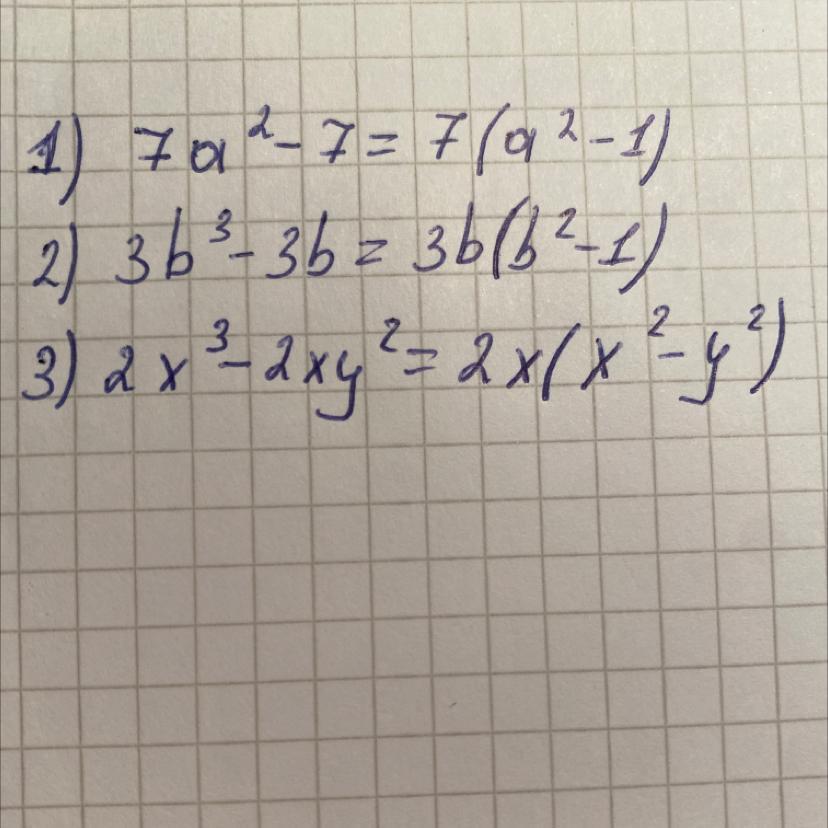 1) 7a² - 7 = 7(a² - 1)
2) 3b³ - 3b = 3b(b² - 1)
3) 2x³ - 2xy² = 2x(x² - y²)